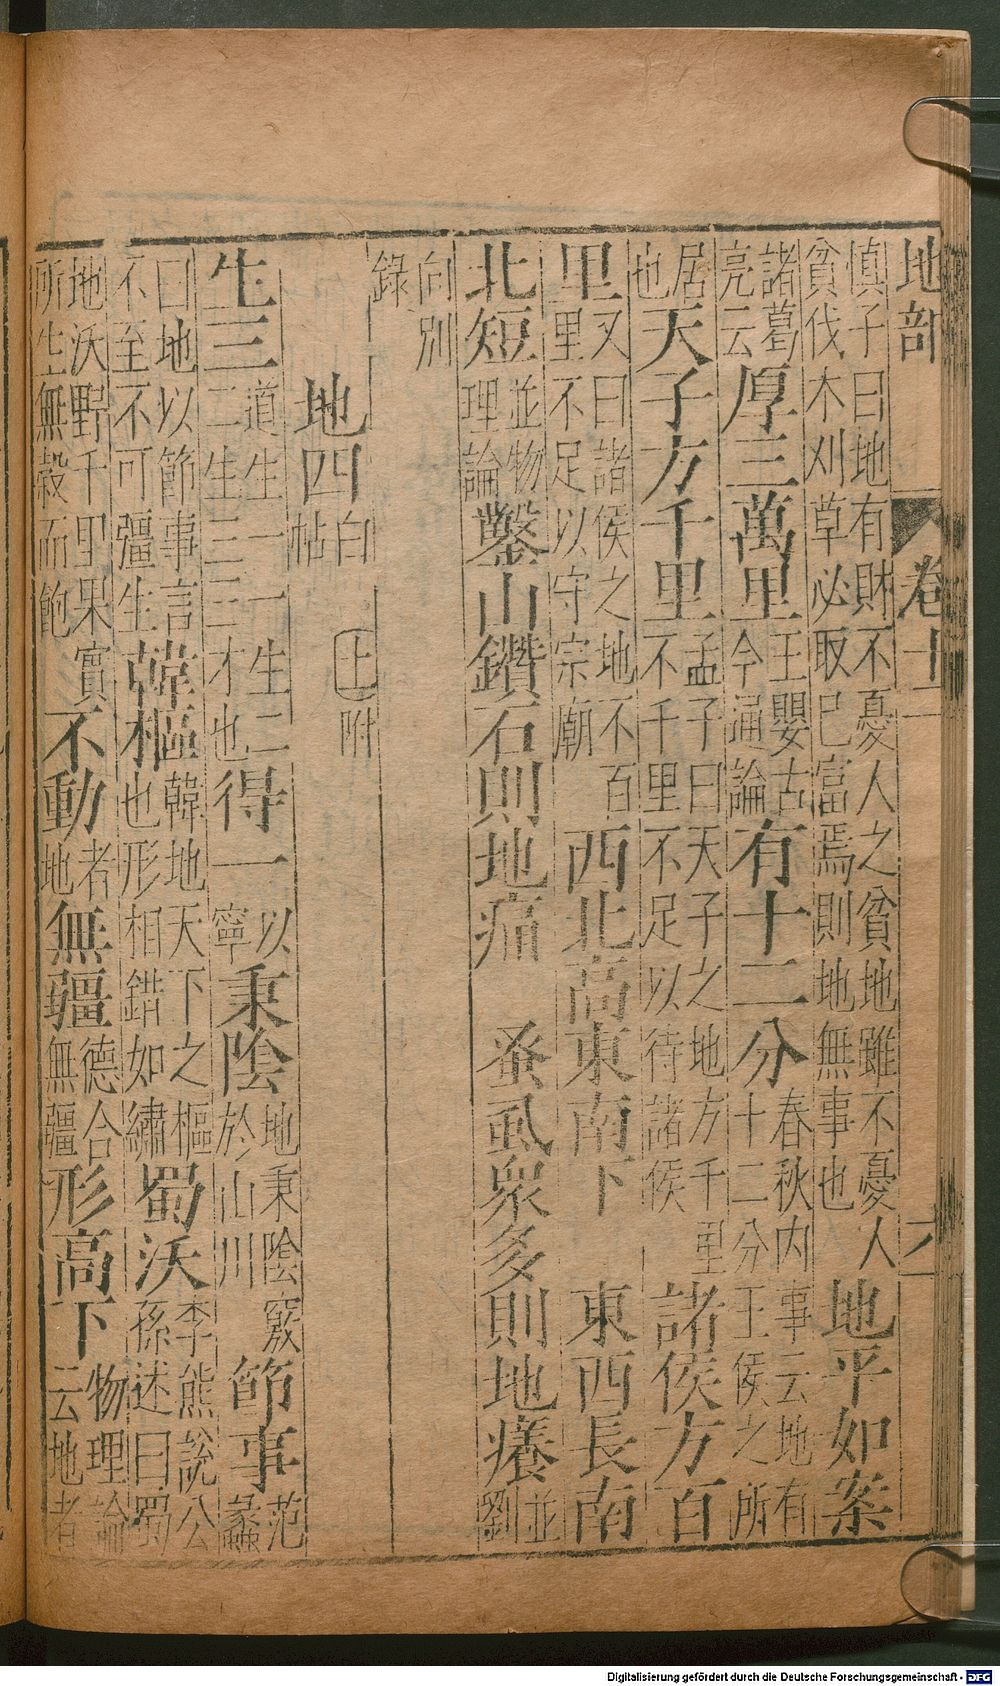 地部 卷十一 六
慎子曰地有財不憂人之貧地雖不憂人
貧伐木刈草必取已富焉則地無事也地平如案
諸葛亮云厚三萬里王嬰古今通論有十二分春秋内事云地有十二分王侯之所
居也天子方千里孟子曰天子之地方千里不千里不足以待諸侯諸侯方百
里又曰諸侯之地不百里不足以守宗廟西北高東南下 東西長南
北短並物理論鑿山鑽石則地痛 蚤虱衆多則地癢並劉
向別錄
地四白帖 上附
生三道生一一生二二生三三才也得一以寧秉陰地秉陰竅於山川節事范蠡
曰地以節事言不至不可彊生韓樞韓地天下之樞也形相錯如繡蜀沃李熊説公孫述曰蜀
地沃野千里果實所生無穀而飽不動者地無疆德合無疆形高下物理論云地者
Digitalisierung gefördert durch die Deutsche Forschungsgemeinschaft - DFG